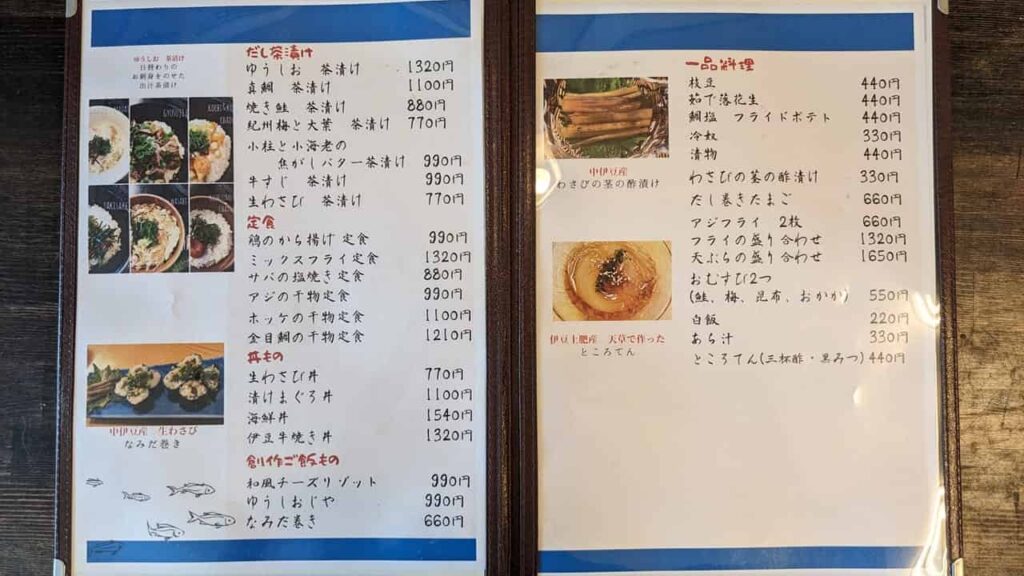 だし茶漬け
ゆうしお 茶漬け 1320円
真鯛 茶漬け 1100円
焼き鮭 茶漬け 880円
紀州梅と大葉 茶漬け 770円
小柱と小海老の
焦がしバター茶漬け 990円
牛すじ 茶漬け 990円
生わさび 茶漬け 770円
定食
鶏のから揚げ 定食 990円
ミックスフライ定食 1320円
サバの塩焼き定食 880円
アジの干物定食 990円
ホッケの干物定食 1100円
金目鯛の干物定食 1210円
丼もの
生わさび丼 770円
漬けまぐろ丼 1100円
海鮮丼 1540円
伊豆牛焼き丼 1320円
創作ご飯もの
和風チーズリゾット 990円
ゆうしおじや 990円
なみだ巻き 660円
ゆうしお 茶漬け
日替わりの
お刺身をのせた
出汁茶漬け
中伊豆産 生わさび
なみだ巻き
一品料理
枝豆 440円
茹で落花生 440円
鯛塩 フライドポテト 440円
冷奴 330円
漬物 440円
わさびの茎の酢漬け 330円
だし巻きたまご 660円
アジフライ 2枚 660円
フライの盛り合わせ 1320円
天ぷらの盛り合わせ 1650円
おむすび2つ
(鮭、梅、昆布、おかか) 550円
白飯 220円
あら汁 330円
ところてん(三杯酢・黒みつ) 440円
中伊豆産
わさびの茎の酢漬け
伊豆土肥産 天草で作った
ところてん